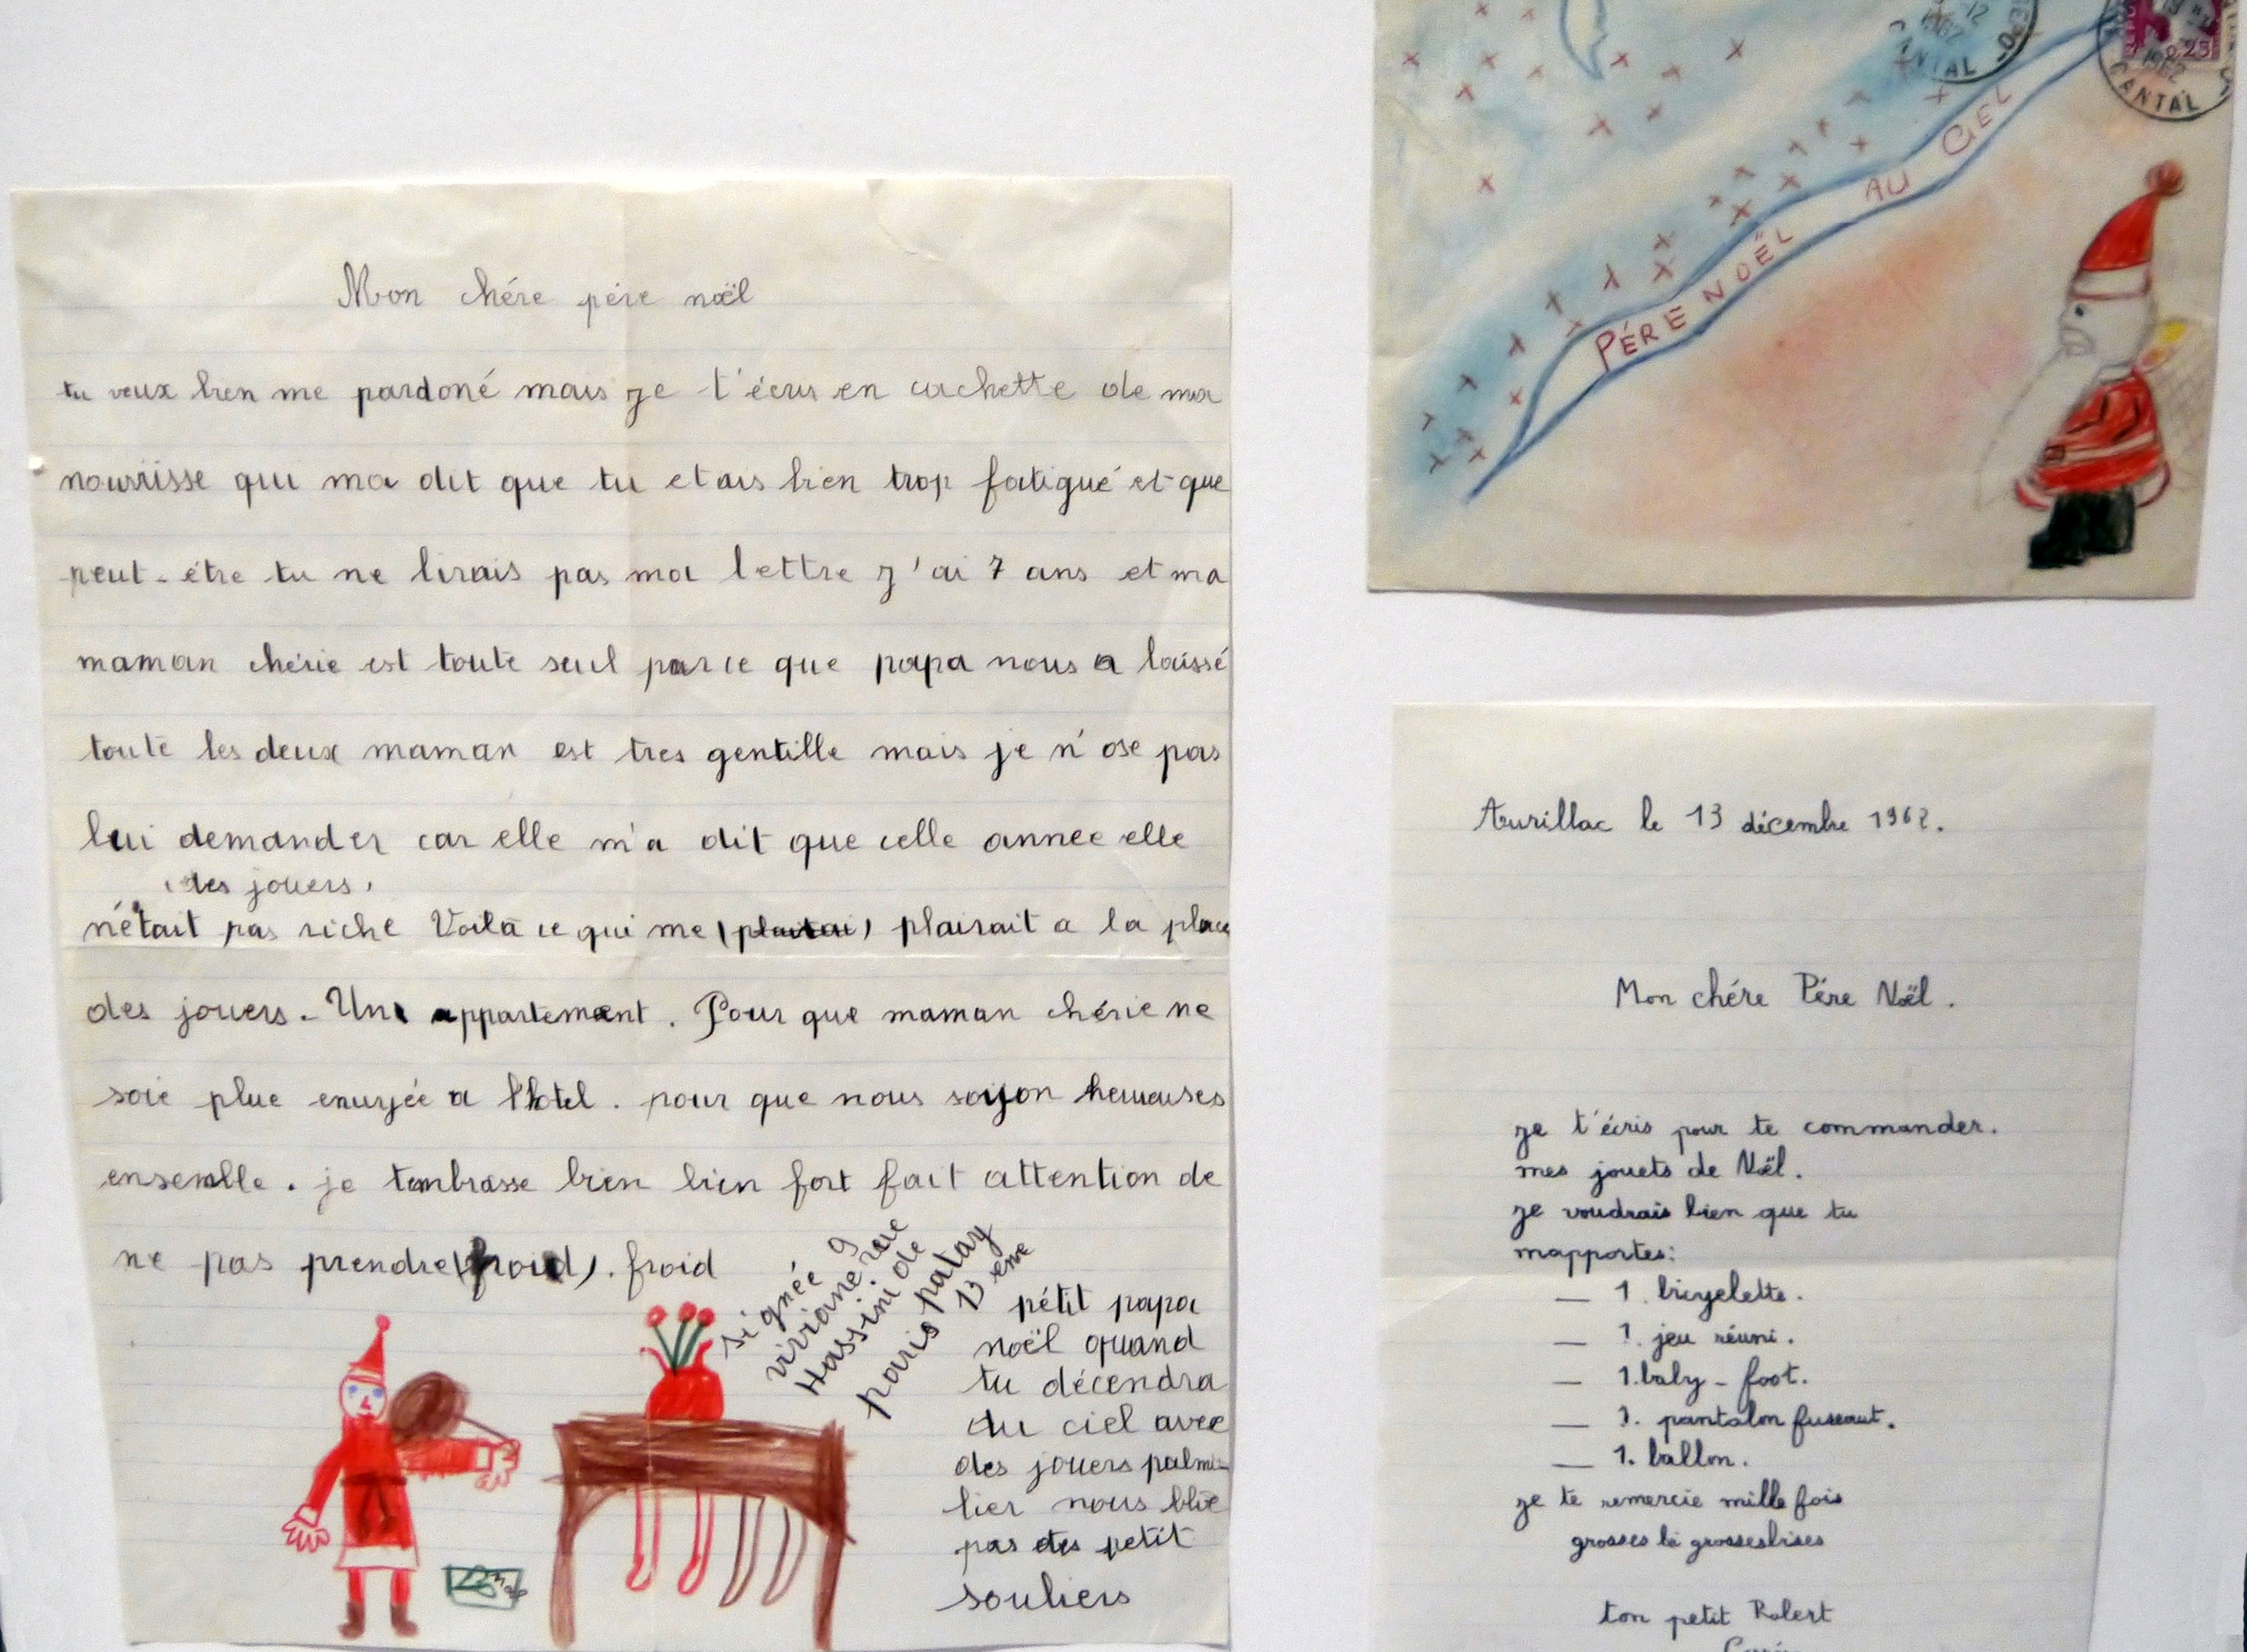 Mon chére pére noël
tu veux bien me pardoné mais je t'écris en cachette de ma
nourrisse qui ma dit que tu etais bien trop fatigué et que
peut-étre tu ne lirais pas ma lettre j'ai 7 ans et ma
maman chérie est toute seul parce que papa nous a laissé
toute les deux maman est tres gentille mais je n'ose pas
lui demander car elle m'a dit que celle annee elle
(des jouers)
n'était pas riche Voila ce qui me (plaitai) plairait a la place
des jouers. Un appartement. Pour que maman chérie ne
soie plue enuyée a l'hotel. pour que nous soiyon heureuses
ensemble. je tembrasse bien bien fort fait attention de
ne pas prendre (froid). froid
signée
viviane
Hassini de
paris patay
13 eme
pétit papa
noël quand
tu décendra
du ciel avec
des jouers palmi
lier nous blie
pas des petit
souliers
PÉRE NOËL AU CIEL
1962
CANTAL
0,25
1962
CANTAL
Aurillac le 13 décembre 1962.
Mon chére Pére Noël.
je t'écris pour te commander.
mes jouets de Noël.
je voudrais bien que tu
mapportes:
— 1. bicyelette.
— 1. jeu réuni.
— 1. baby-foot.
— 1. pantalon fuseaut.
— 1. ballon.
je te remercie mille fois
grosses bi grossesbises
ton petit Robert